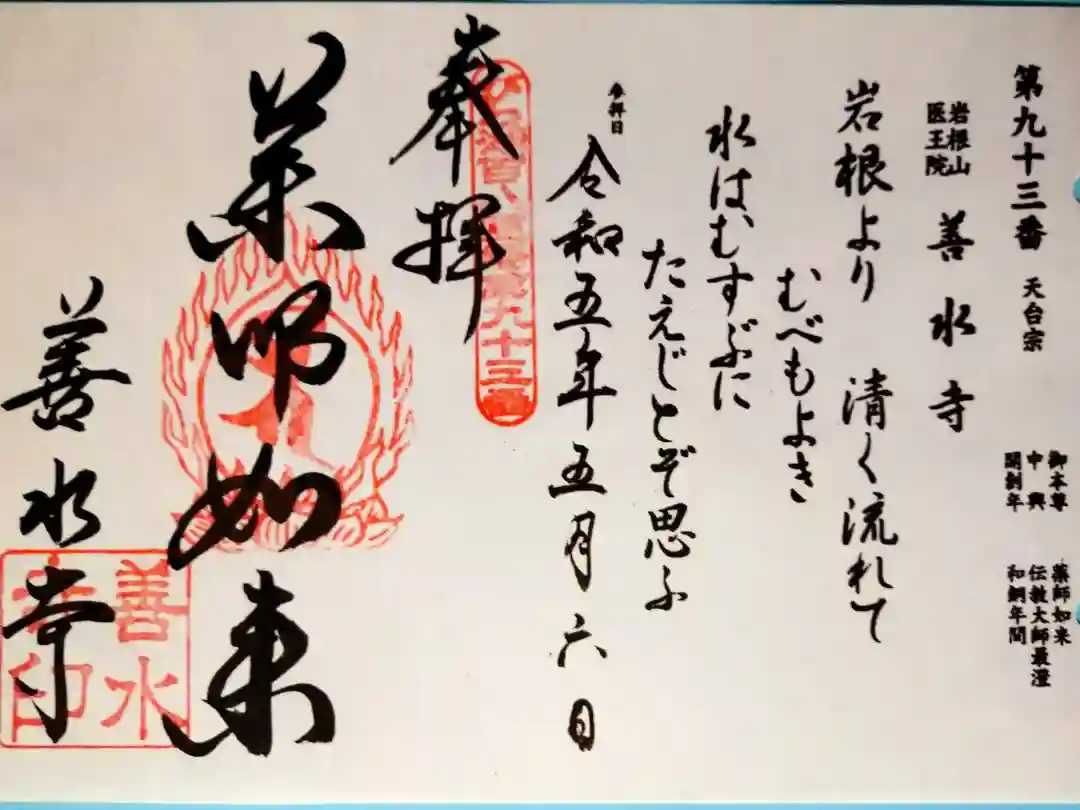 第九十三番 天台宗
御本尊 薬師如来
中興 伝教大師最澄
開創年 和銅年間
岩根山
医王院
善水寺
岩根より 清く流れて
むべもよき
水はむすぶに
たえじとぞ思ふ
参拝日
令和五年五月六日
奉拝
九十三番
薬師如来
善水寺
善水
寺印